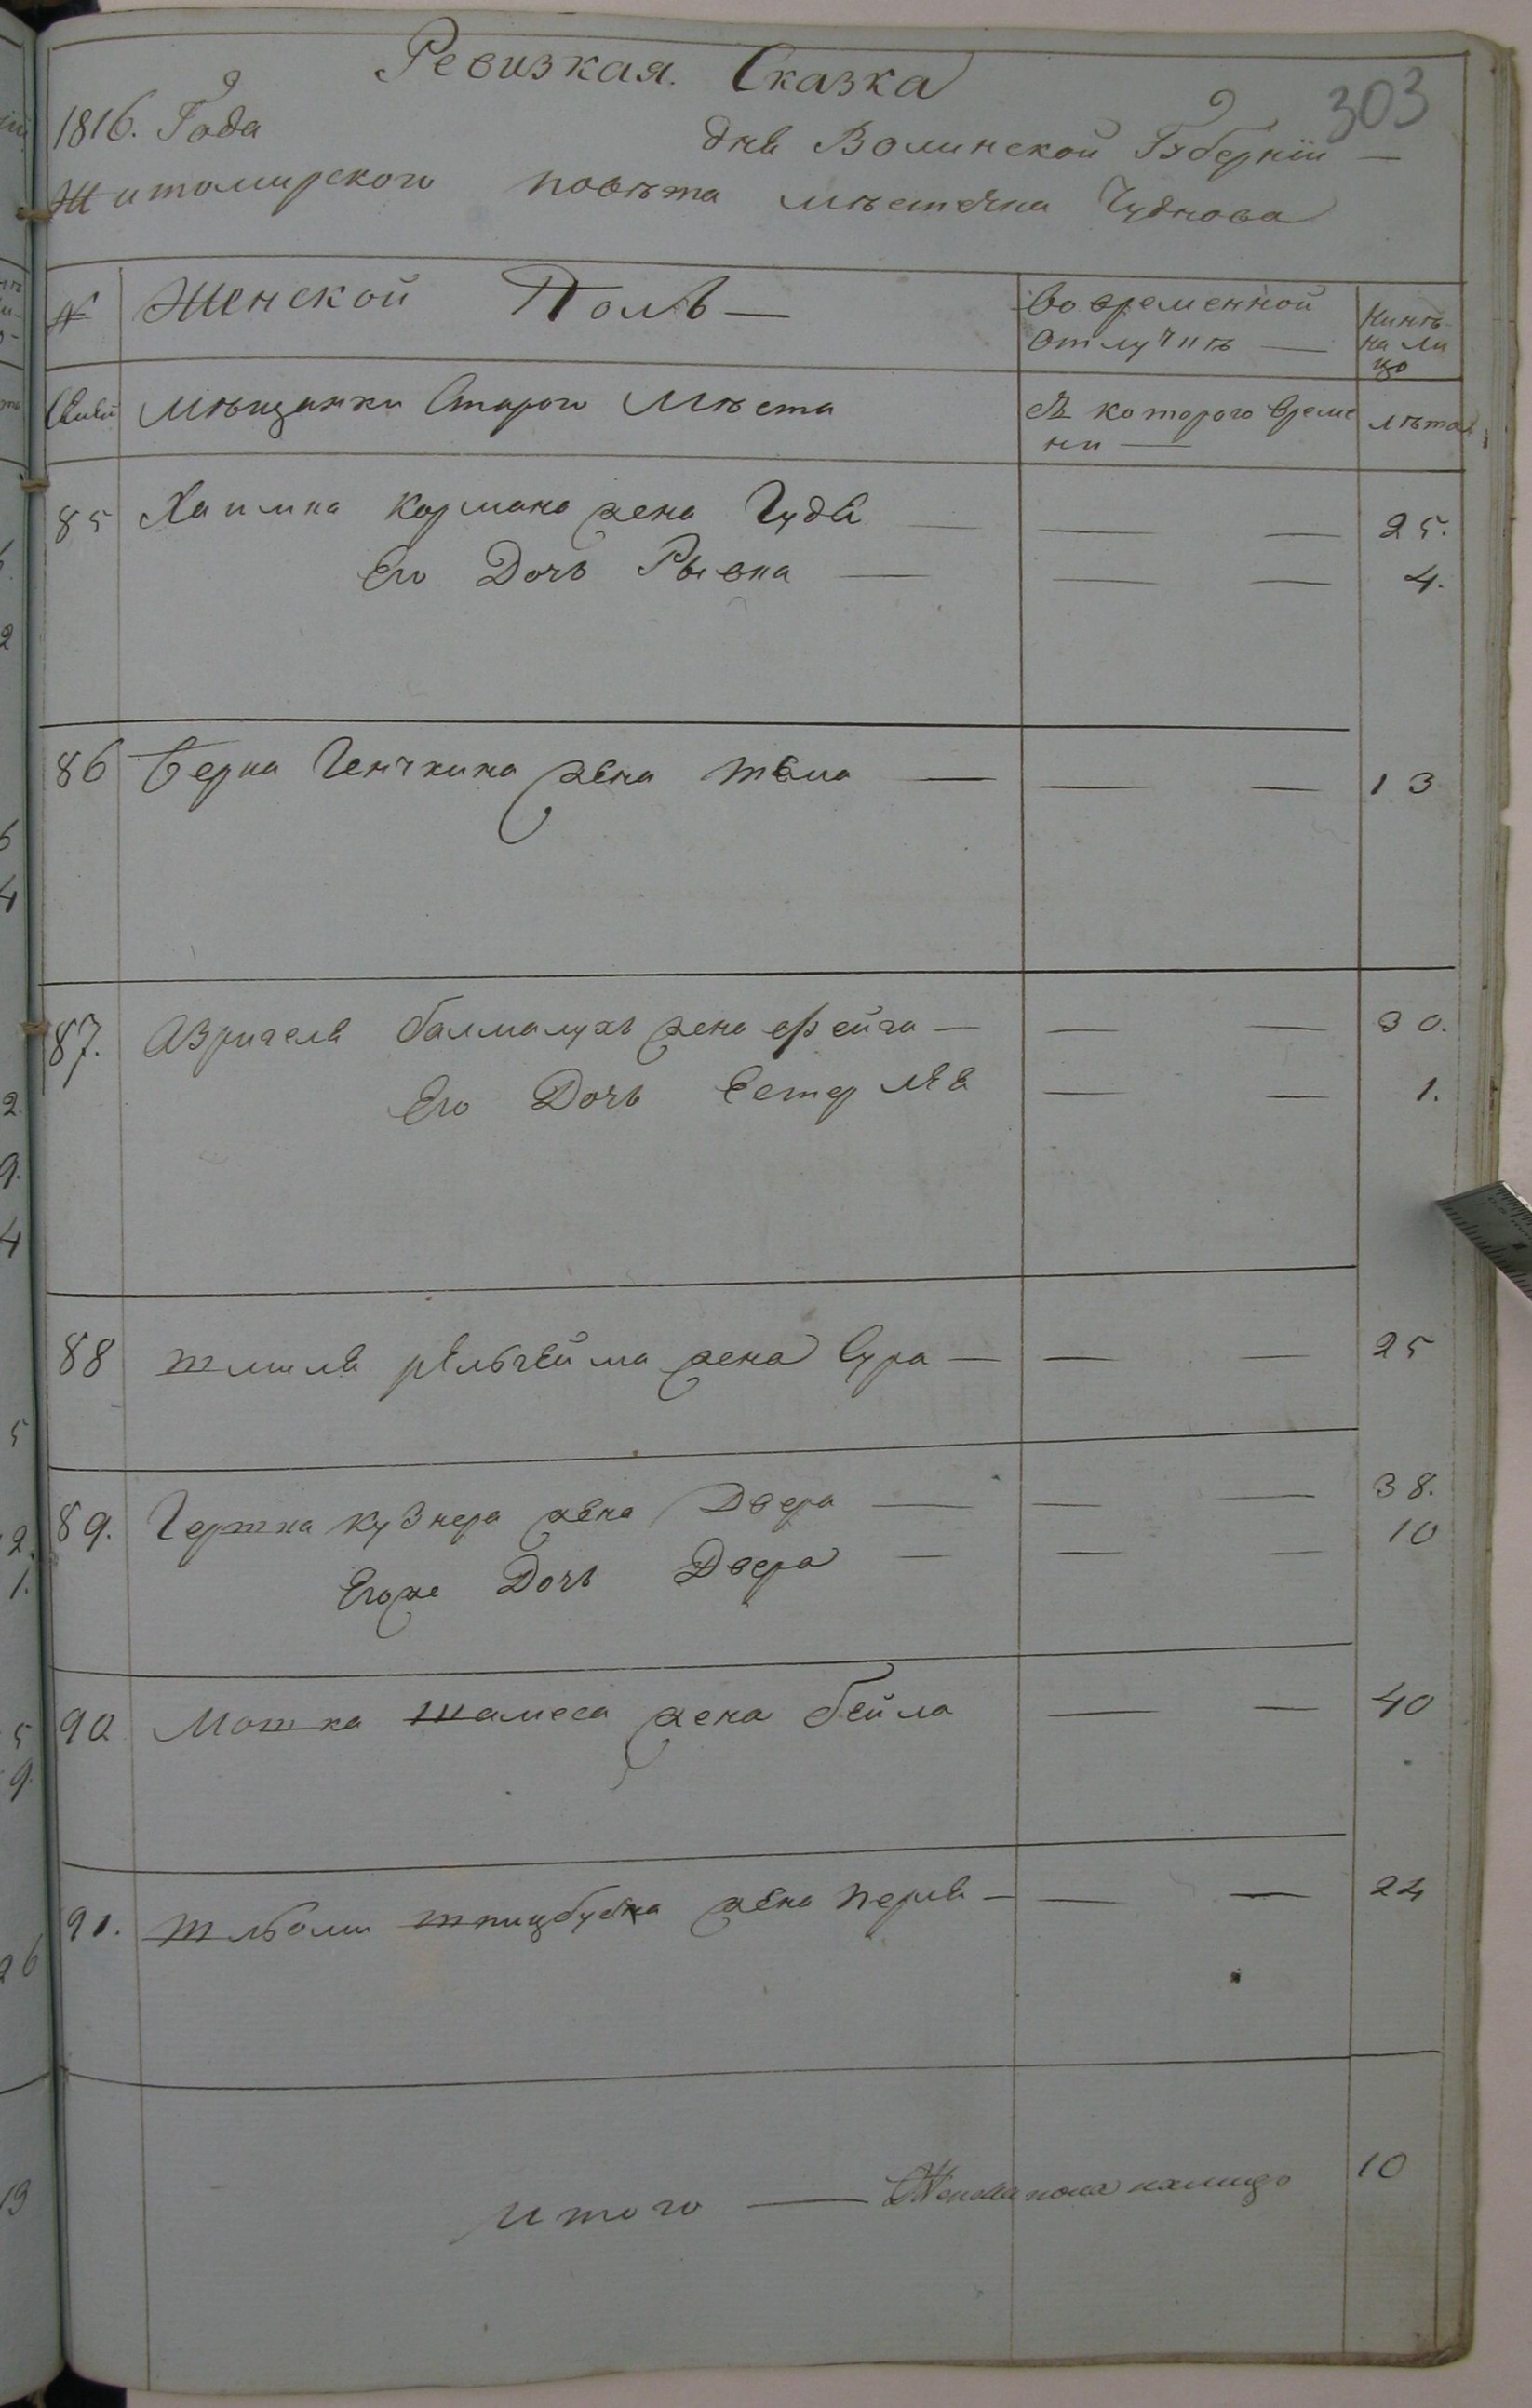 303
Ревизкая. Сказка
1816. Года дня Волинской Губернїи —
Житомирского повѣта мѣстечка Чуднова
№ Женской Полъ — Во временной Отлучкѣ — Нинѣ на ли цо
Мѣщанки Старого Мѣста Съ которого Време ни — лѣта
85 Хаимка Кормана жена Гудя — — — 25.
Его Дочь Рывка — — — 4.
86 Берка Генчкина жена — — — 13
87. Азриеля Балмалуха жена фейга — — — 30.
Его Дочь Естер Лея — — 1.
88 жена Сура — — — 25
89. Гершка кузнера жена Двера — — — 38.
Егоже Дочь Двера — — — 10
90 Мошка шамеса жена бейла — — 40
91. жена перля — — — 24
Итого — Женска пола налицо 10